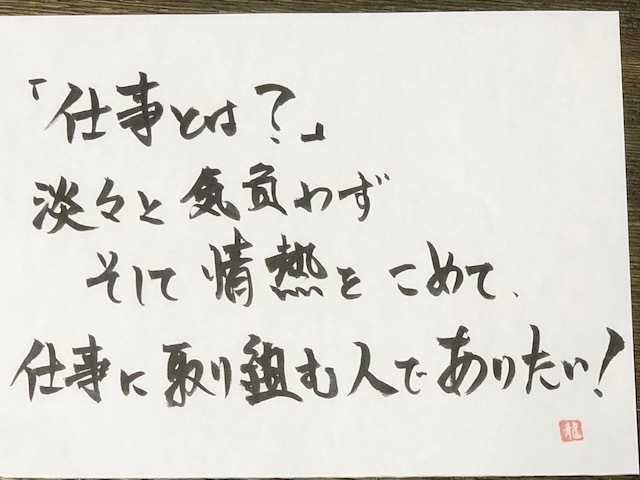 「仕事とは？」
淡々と気負わず
そして情熱をこめて、
仕事に取り組む人でありたい！
龍